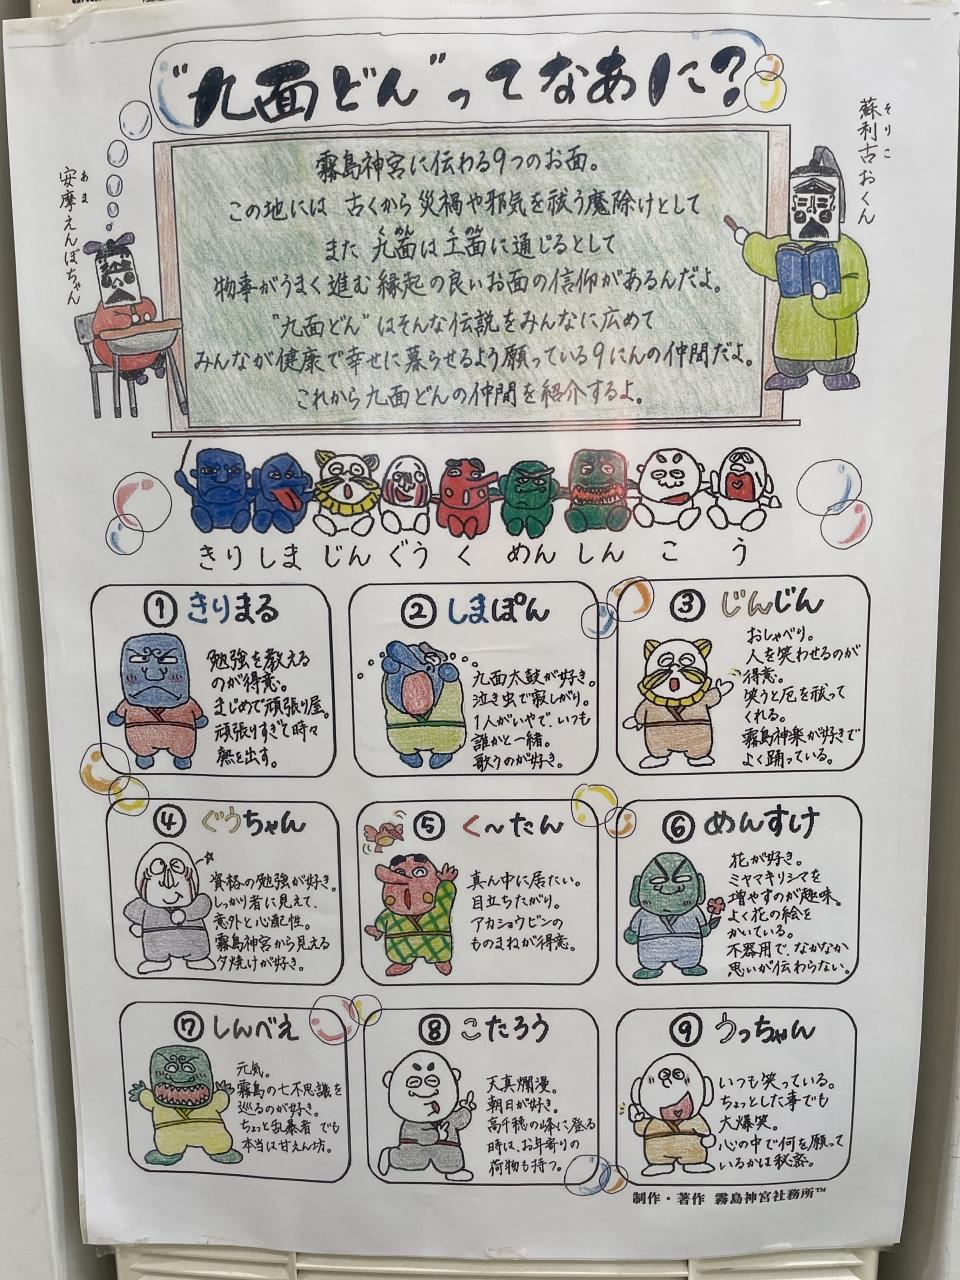 "九面どん"ってなあに?
蘇利古おくん
そりこ
安摩えんぼちゃん
あま
霧島神宮に伝わる9つのお面。
この地には 古くから災禍や邪気を祓う魔除けとして
また 九面は工面に通じるとして
くめん くめん
物事がうまく進む縁起の良いお面の信仰があるんだよ。
"九面どん"はそんな伝説をみんなに広めて
みんなが健康で幸せに暮らせるよう願っている9にんの仲間だよ。
これから九面どんの仲間を紹介するよ。
きり しま じん ぐう く めん しん こ う
① きりまる
勉強を教える
のが得意。
まじめで頑張り屋。
頑張りすぎて時々
熱を出す。
② しまぽん
九面太鼓が好き。
泣き虫で寂しがり。
1人がいやで、いつも
誰かと一緒。
歌うのが好き。
③ じんじん
おしゃべり。
人を笑わせるのが
得意。
笑うと厄を祓って
くれる。
霧島神楽が好きで
よく踊っている。
④ ぐうちゃん
資格の勉強が好き。
しっかり者に見えて、
意外と心配性。
霧島神宮から見える
夕焼けが好き。
⑤ く〜たん
真ん中に居たい。
目立ちたがり。
アカショウビンの
ものまねが得意。
⑥ めんすけ
花が好き。
ミヤマキリシマを
増やすのが趣味。
よく花の絵を
かいている。
不器用で、なかなか
思いが伝わらない。
⑦ しんべえ
元気。
霧島の七不思議を
巡るのが好き。
ちょっと乱暴者 でも
本当は甘えん坊。
⑧ こたろう
天真爛漫。
朝日が好き。
高千穂の峰に登る
時は、お年寄りの
荷物も持つ。
⑨ うっちゃん
いつも笑っている。
ちょっとした事でも
大爆笑。
心の中で何を願って
いるかは秘密。
制作・著作 霧島神宮社務所™